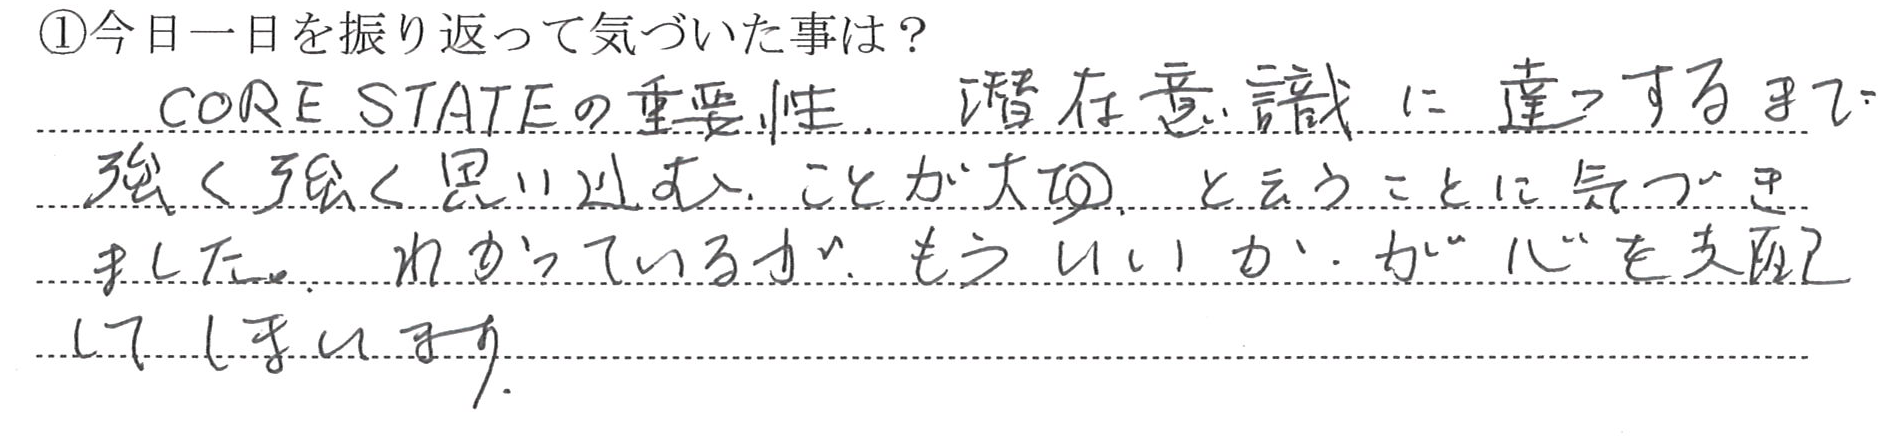 ①今日一日を振り返って気づいた事は？
CORE STATEの重要性. 潜在意識に達っするまで
強く強く思い込む. ことが大切. と云うことに気づき
ました。. わかっているが. もういいか. が心を支配
してしまいます.